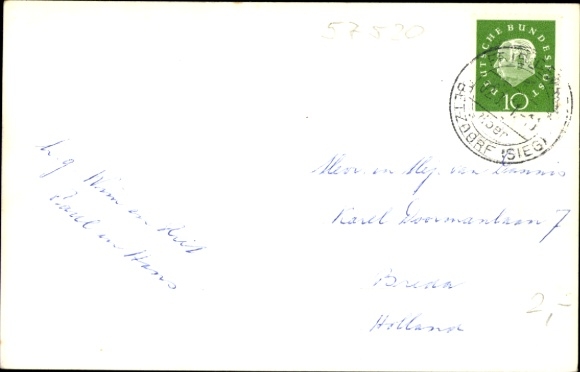 57520
DEUTSCHE BUNDESPOST
10
BETZDORF (SIEG)
über
h. g. Wim en Riet
Carel en Hans
Mevr. en Mej. van Dannis
Karel Doormanlaan 7
Breda
Holland
2,-